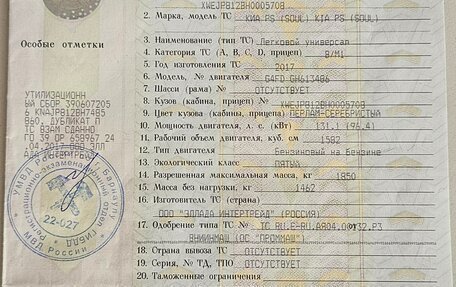 XWEJPB12BH0005708
2. Марка, модель ТС КИА PS (SOUL) KIA PS (SOUL)
Особые отметки
3. Наименование (тип ТС) Легковой универсал
4. Категория ТС (A, B, C, D, прицеп) B/M1
5. Год изготовления ТС 2017
6. Модель, № двигателя G4FD GH613486
7. Шасси (рама) № ОТСУТСТВУЕТ
8. Кузов (кабина, прицеп) № XWEJPB12BH0005708
9. Цвет кузова (кабины, прицепа) ПЕРЛАМ-СЕРЕБРИСТЫЙ
10. Мощность двигателя, л. с. (кВт) 131.1 (96.4)
11. Рабочий объем двигателя, куб. см 1582
12. Тип двигателя Бензиновый на бензине
13. Экологический класс ПЯТЫЙ
14. Разрешенная максимальная масса, кг 1850
15. Масса без нагрузки, кг 1462
16. Изготовитель ТС (страна)
ООО "ЭЛЛАДА ИНТЕРТРЕЙД" (РОССИЯ)
17. Одобрение типа ТС №
18. Страна вывоза ТС ОТСУТСТВУЕТ
19. Серия, № ТД, ТПО ОТСУТСТВУЕТ
20. Таможенные ограничения
УТИЛИЗАЦИОНН
ЫЙ СБОР 390607205
ДУБЛИКАТ П
ТС ВЗАМ СДАННО
ГО 39 ОР 698967 24
.04.2017 ООО ЭЛЛ
22-027
МВД России